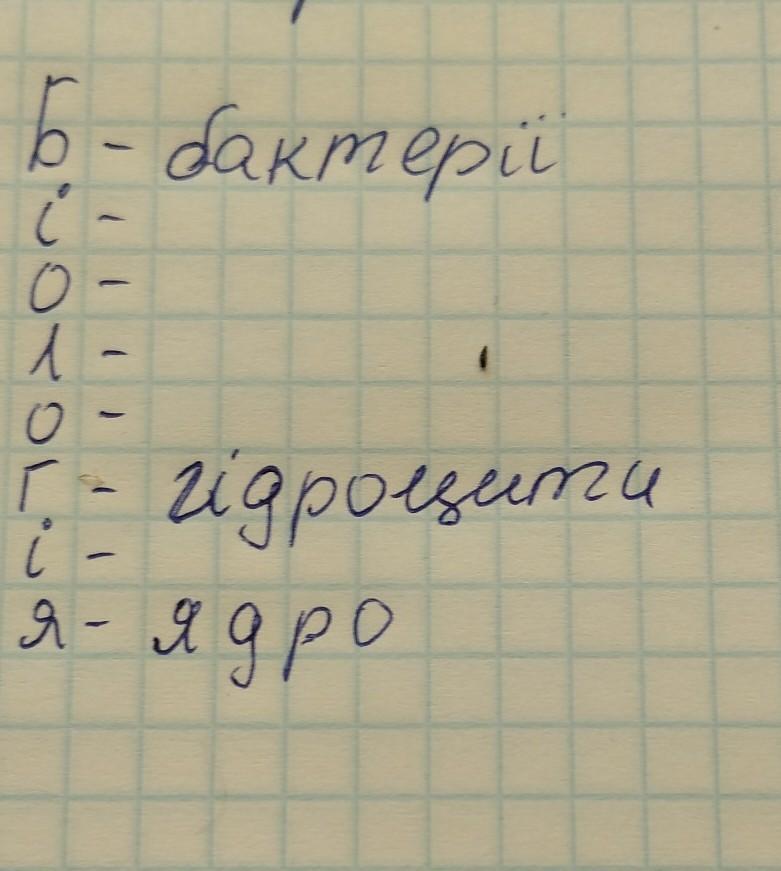 Б - бактерії
і -
о -
л -
о -
г - гідроцити
і -
я - ядро